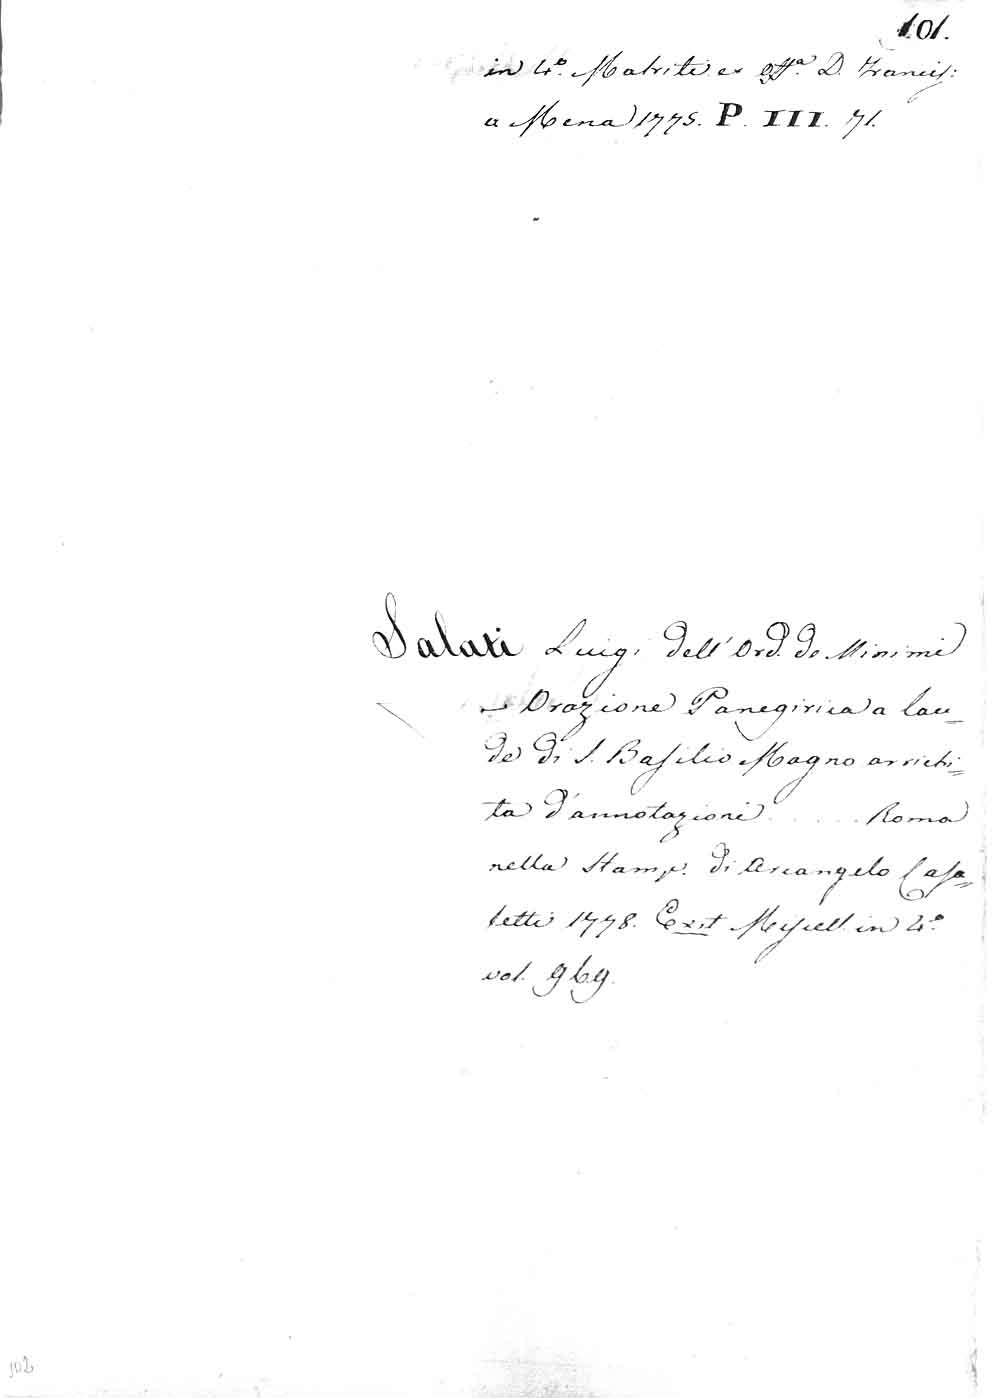 101.
in 4.º Matriti ex Off.ª D. Francis:
a Mena 1775. P. III. 71.
Salati Luigi dell' Ord. de Minimi
- Orazione Panegirica a lau=
de di S. Basilio Magno arrichi=
ta d'annotazioni ..... Roma
nella Stamp. di Arcangelo Casa=
letti 1778. Exst Miscell. in 4.º
vol. 969.
102